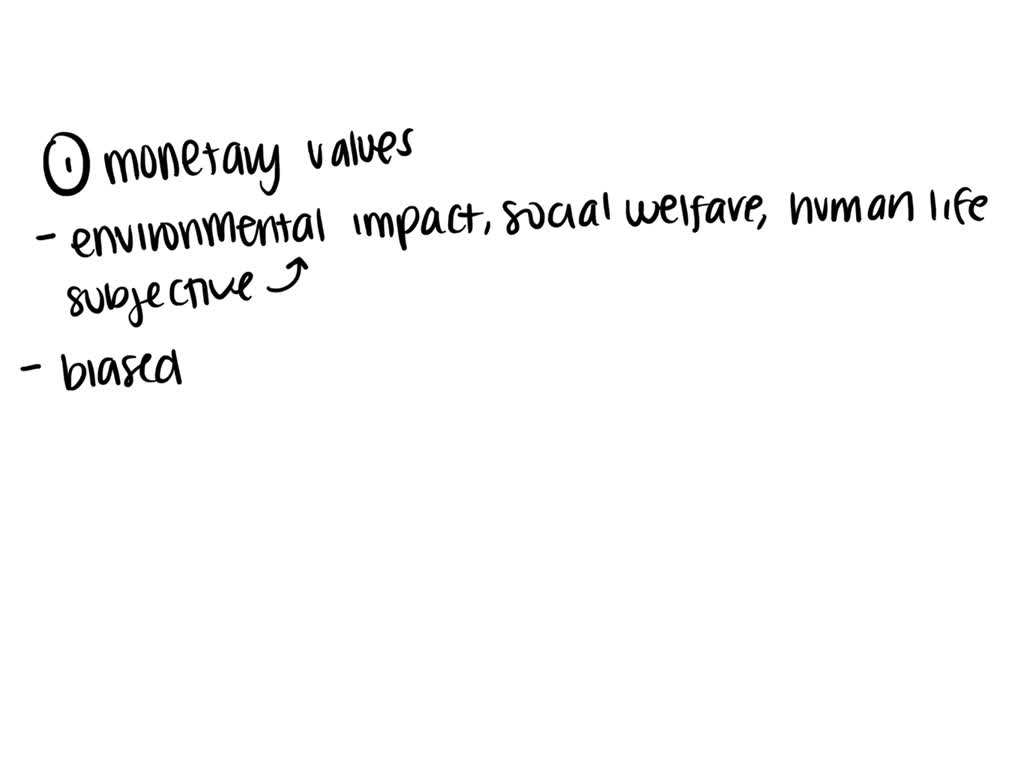 ① monetary values
- environmental impact, social welfare, human life
subjective ⤴
- biased